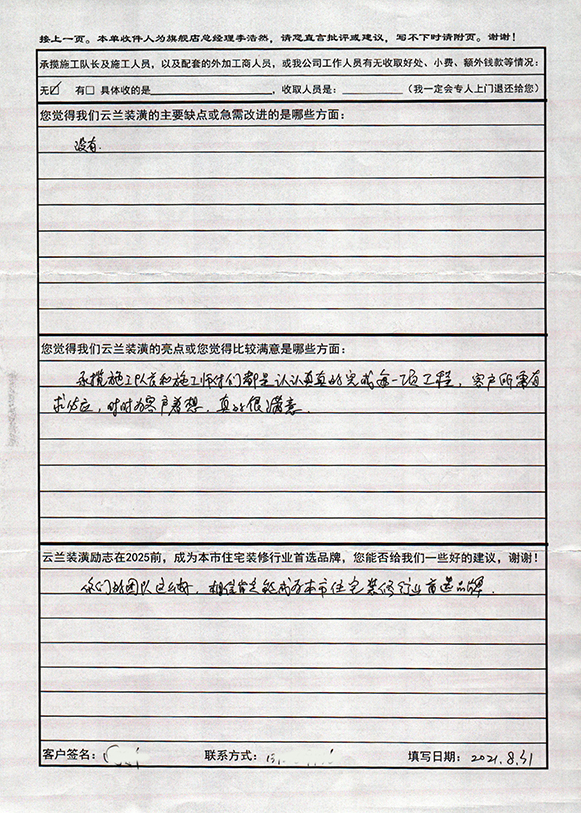 接上一页。本单收件人为旗舰店总经理李浩然，请您直言批评或建议，写不下时请附页。谢谢！
承揽施工队长及施工人员，以及配套的外加工商人员，或我公司工作人员有无收取好处、小费、额外钱款等情况：
无☑ 有□ 具体收的是 ，收取人员是： （我一定会专人上门退还给您）
您觉得我们云兰装潢的主要缺点或急需改进的是哪些方面：
没有.
您觉得我们云兰装潢的亮点或您觉得比较满意是哪些方面：
承揽施工队长和施工师傅们都是认认真真的完成每一项工程，客户所需有
求必应，时时为客户着想，真的很满意.
云兰装潢励志在2025前，成为本市住宅装修行业首选品牌，您能否给我们一些好的建议，谢谢！
你们的团队这么好，相信肯定能成为本市住宅装修行业首选品牌.
客户签名： 联系方式： 填写日期：2021.8.31